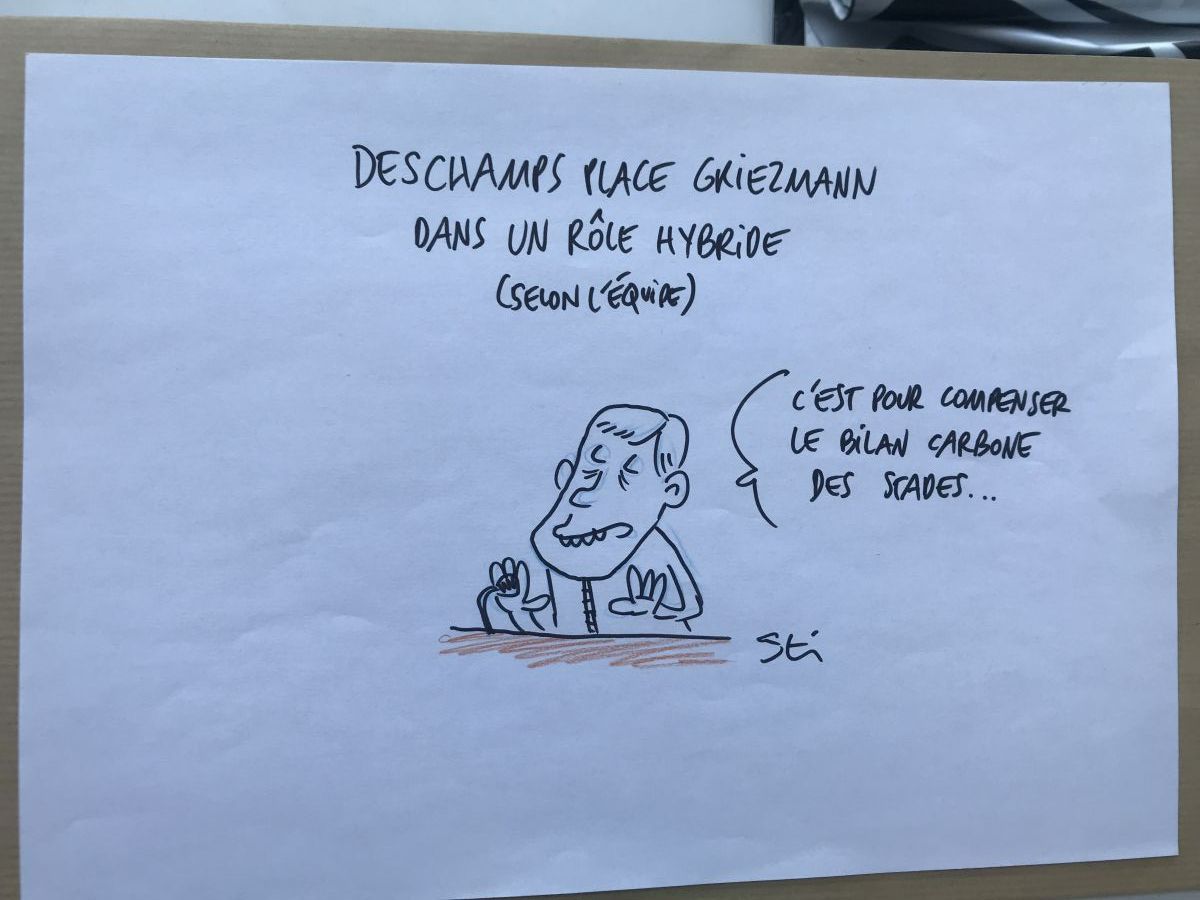 DESCHAMPS PLACE GRIEZMANN
DANS UN RÔLE HYBRIDE
(SELON L'ÉQUIPE)
C'EST POUR COMPENSER
LE BILAN CARBONE
DES STADES...
Sti